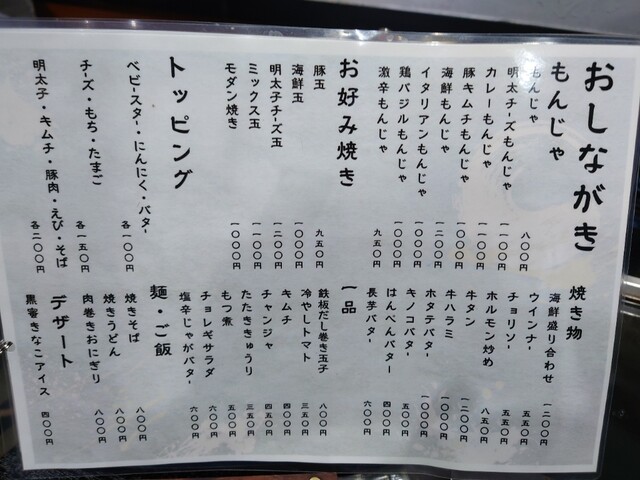 おしながき
もんじゃ
もんじゃ 八〇〇円
明太チーズもんじゃ 一一〇〇円
カレーもんじゃ 一一〇〇円
豚キムチもんじゃ 一〇〇〇円
海鮮もんじゃ 一二〇〇円
イタリアンもんじゃ 一〇〇〇円
鶏バジルもんじゃ 一〇〇〇円
激辛もんじゃ 九五〇円
お好み焼き
豚玉 九五〇円
海鮮玉 一〇〇〇円
明太子チーズ玉 一二〇〇円
ミックス玉 一一〇〇円
モダン焼き 一〇〇〇円
トッピング
ベビースター・にんにく・バター 各一〇〇円
チーズ・もち・たまご 各一五〇円
明太子・キムチ・豚肉・えび・そば 各二〇〇円
焼き物
海鮮盛り合わせ 一二〇〇円
ウインナー 五五〇円
チョリソー 五五〇円
ホルモン炒め 八五〇円
牛タン 一二〇〇円
牛ハラミ 一〇〇〇円
ホタテバター 一〇〇〇円
キノコバター 五〇〇円
はんぺんバター 四〇〇円
長芋バター 六〇〇円
一品
鉄板だし巻き玉子 八〇〇円
冷やしトマト 三五〇円
キムチ 四〇〇円
チャンジャ 四五〇円
たたききゅうり 三五〇円
もつ煮 五〇〇円
チョレギサラダ 六〇〇円
塩辛じゃがバター 六〇〇円
麺・ご飯
焼きそば 八〇〇円
焼きうどん 八〇〇円
肉巻きおにぎり 八〇〇円
デザート
黒蜜きなこアイス 四〇〇円